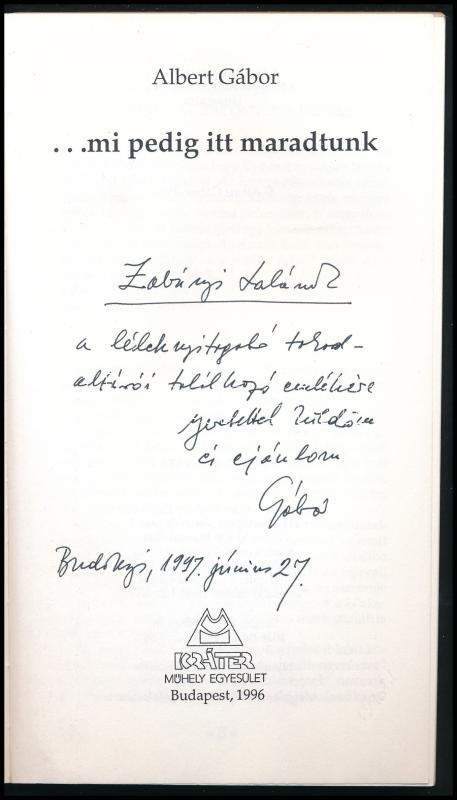 Albert Gábor
. . .mi pedig itt maradtunk
Zobányi
a léleknyitogató tokod-
altárói találkozó emlékére
szeretettel küldöm
és ajánlom
Gábor
Budakeszi, 1997. június 27.
KRÁTER
MŰHELY EGYESÜLET
Budapest, 1996